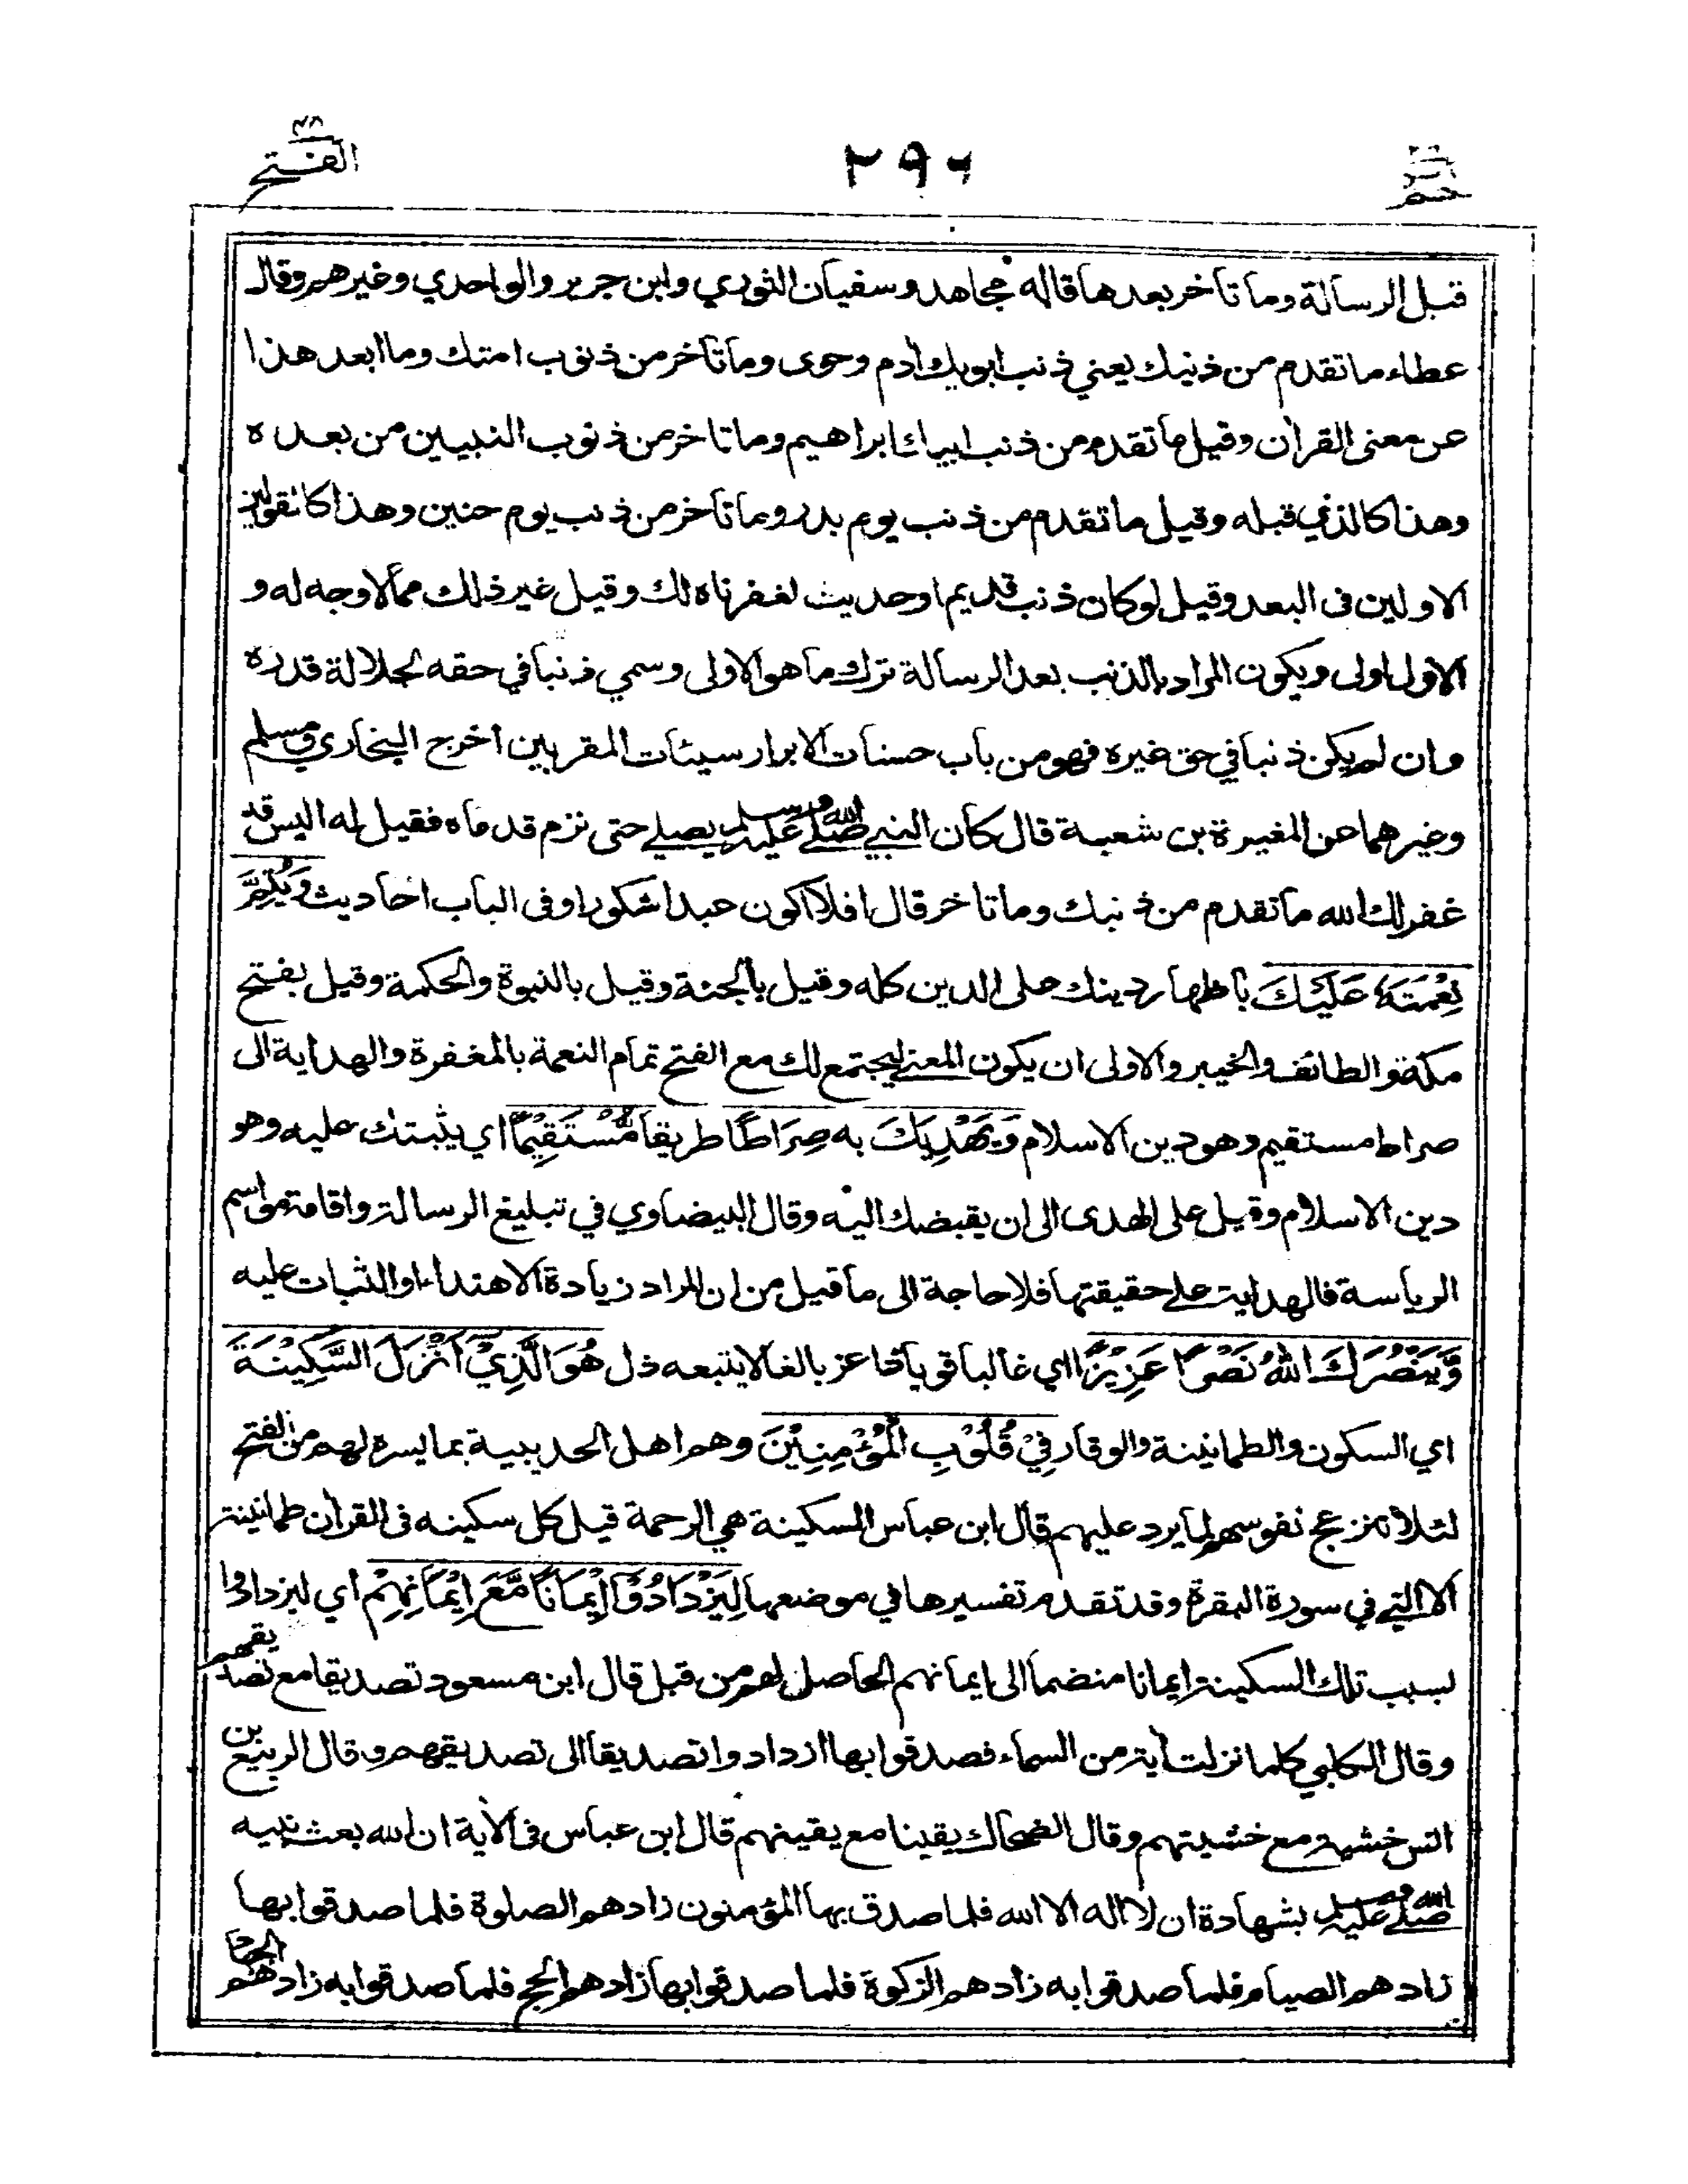 الفتح ٤٨
٢٩٦
حم
قبل الرسالة وما تأخر بعدها قاله مجاهد وسفيان الثوري وابن جرير والواحدي وغيرهم وقال
عطاء ما تقدم من ذنبك يعني ذنب ابويك أدم وحوى وما تأخر من ذنوب امتك وما ابعد هذا
عن معنى القرأن وقيل ما تقدم من ذنب ابيك ابراهيم وما تاخر من ذنوب النبيين من بعده
وهذا كالذي قبله وقيل ما تقدم من ذنب يوم بدر وما تأخر من ذنب يوم حنين وهذا كالقولين
الاولين فى البعد وقيل لوكان ذنب قديم او حديث لغفرناه لك وقيل غير ذلك مما لا وجه له و
الاول اولى ويكون المراد بالذنب بعد الرسالة ترك ما هو الاولى وسمي ذنبا في حقه لجلالة قدره
وان لم يكن ذنبا في حق غيره فهو من باب حسنات الابرار سيئات المقربين أخرج البخاري ومسلم
وغيرهما عن المغيرة بن شعبة قال كان النبي صلى الله عليه وسلم يصلي حتى ترم قدماه فقيل له اليس قد
غفر لك الله ما تقدم من ذنبك وما تاخر قال افلا اكون عبدا شكورا وفى الباب احاديث وَيُتِمَّ
نِعْمَتَهُ عَلَيْكَ باظهار دينك على الدين كله وقيل بالجنة وقيل بالنبوة والحكمة وقيل بفتح
مكة والطائف والخيبر والاولى ان يكون المعنى ليجتمع لك مع الفتح تمام النعمة بالمغفرة والهداية الى
صراط مستقيم وهو دين الاسلام وَيَهْدِيَكَ به صِرَاطًا طريقا مُّسْتَقِيْمًا اي يثبتك عليه وهو
دين الاسلام وقيل على الهدى الى ان يقبضك اليه وقال البيضاوي في تبليغ الرسالة واقامة مواسم
الرياسة فالهداية على حقيقتها فلا حاجة الى ما قيل من ان المراد زيادة الاهتداء او الثبات عليه
وَّيَنْصُرَكَ اللهُ نَصْرًا عَزِيْزًا اي غالبا قويا ذا عز بالغا لا يتبعه ذل هُوَ الَّذِيْ أَنْزَلَ السَّكِيْنَةَ
اي السكون والطمانينة والوقار فِيْ قُلُوْبِ الْمُؤْمِنِيْنَ وهم اهل الحديبية بما يسره لهم من الفتح
لئلا تنزعج نفوسهم لما يرد عليهم قال ابن عباس السكينة هي الرحمة قيل كل سكينه فى القرأن طمانينة
الا التي في سورة البقرة وقد تقدم تفسيرها في موضعها لِيَزْدَادُوْٓا إِيْمَانًا مَّعَ إِيْمَانِهِمْ اي ليزدادوا
بسبب تلك السكينة ايمانا منضما الى ايمانهم الحاصل لهم من قبل قال ابن مسعود تصديقا مع تصديقهم
وقال الكلبي كلما نزلت أية من السماء فصدقوا بها ازدادوا تصديقا الى تصديقهم وقال الربيع بن
انس خشية مع خشيتهم وقال الضحاك يقينا مع يقينهم قال ابن عباس فى الأية ان الله بعث نبيه
صلى الله عليه وسلم بشهادة ان لا اله الا الله فلما صدق بها المؤمنون زادهم الصلوة فلما صدقوا بها
زادهم الصيام فلما صدقوا به زادهم الزكوة فلما صدقوا بها زادهم الحج فلما صدقوا به زادهم الجهاد